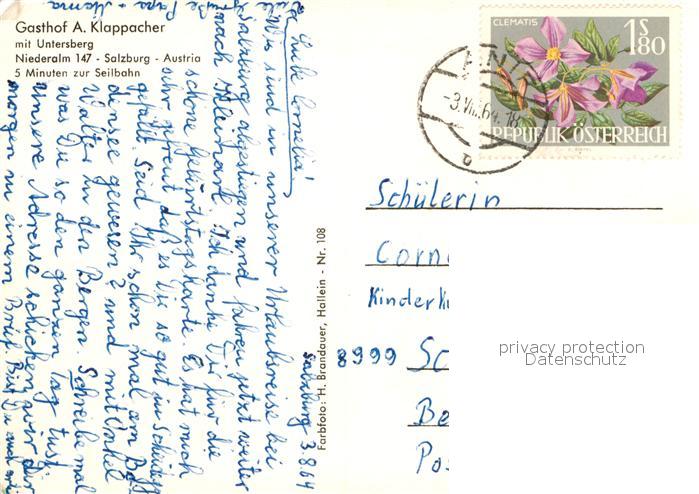 Gasthof A. Klappacher
mit Untersberg
Niederalm 147 - Salzburg - Austria
5 Minuten zur Seilbahn
Salzburg 3.8.64
Liebe Cornelia!
Wir sind in unserer Urlaubsreise bei
Salzburg abgestiegen und fahren jetzt weiter
nach Ich danke Dir für die
schöne Geburtstagskarte. Es hat mich
sehr gefreut daß es Dir so gut in
gefällt. Seid Ihr schon mal am Bo-
densee gewesen? und mit Onkel
Walter in den Bergen. Schreibe mal
was Du so den ganzen Tag tust.
Unsere Adresse schicken wir Dir
morgen in einem Brief. Bist Du auch
Papa + Mama
Farbfoto: H. Brandauer, Hallein - Nr. 108
CLEMATIS
1S80
REPUBLIK ÖSTERREICH
-3.VIII.64.18
Schülerin
Corn
Kinderk
8999 Sc
Be
Pos
privacy protection
Datenschutz